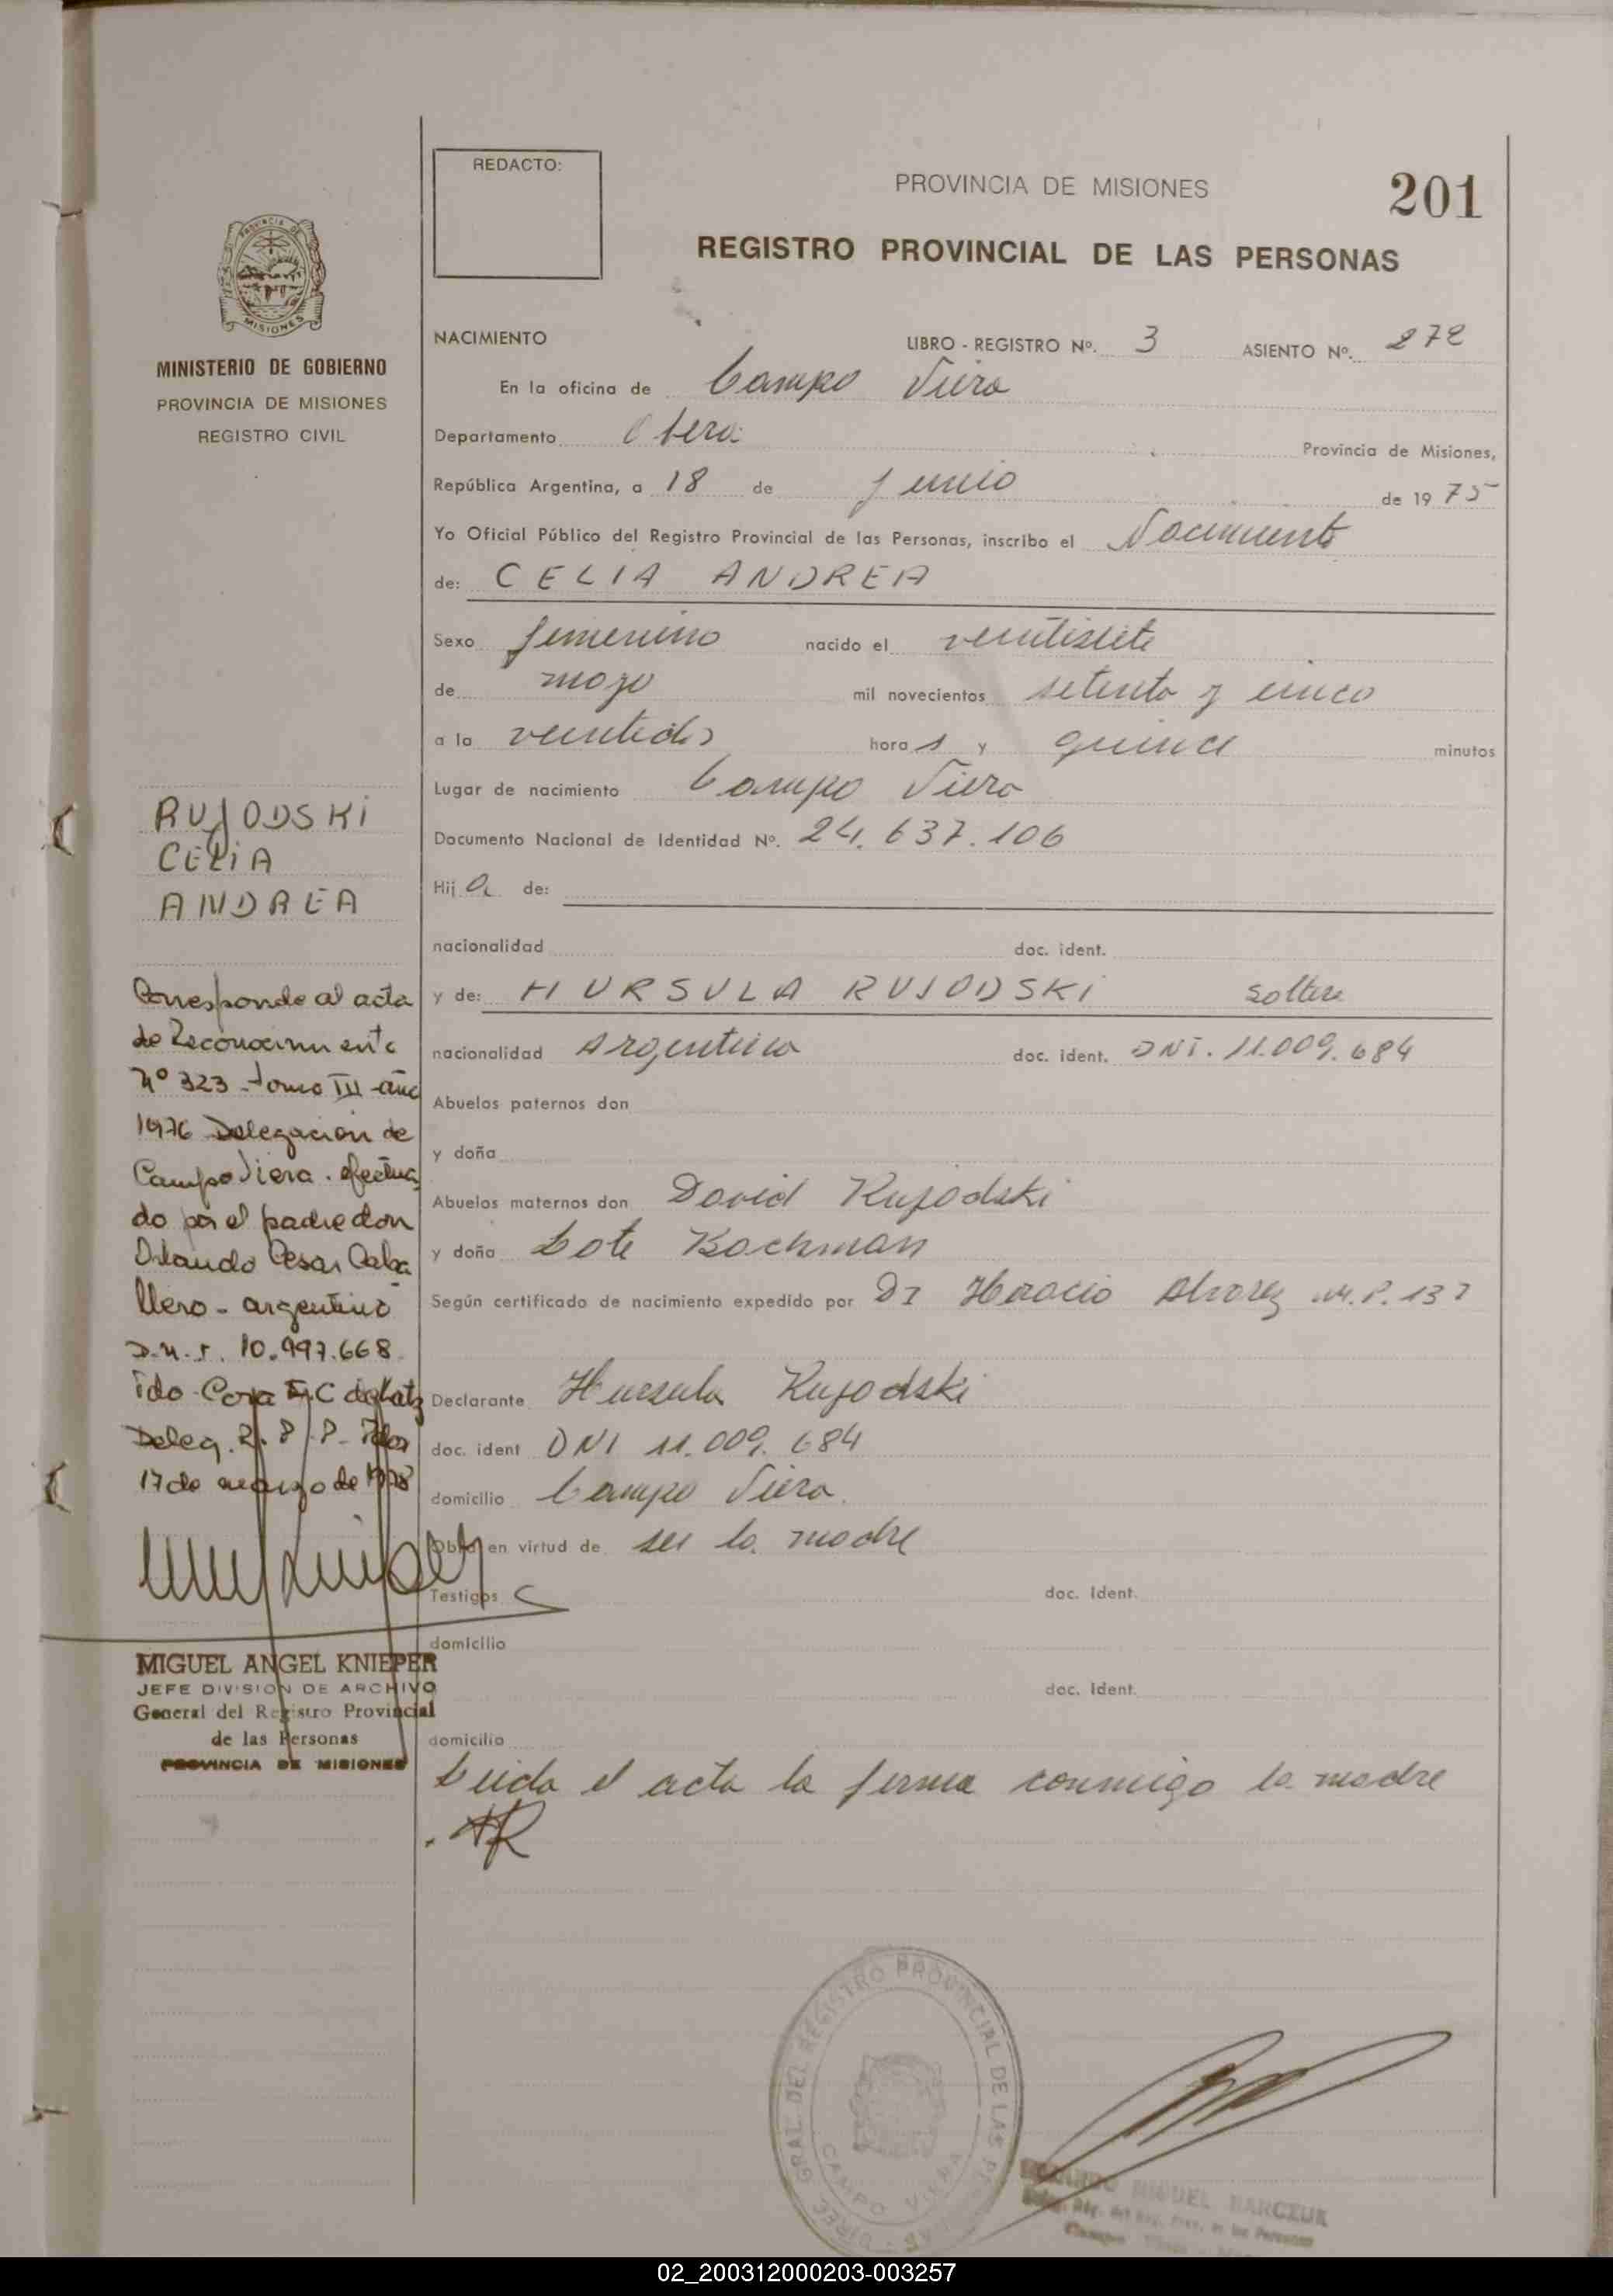 REDACTO:
PROVINCIA DE MISIONES
201
REGISTRO PROVINCIAL DE LAS PERSONAS
MISIONES
MINISTERIO DE GOBIERNO
PROVINCIA DE MISIONES
REGISTRO CIVIL
NACIMIENTO LIBRO - REGISTRO Nº. 3 ASIENTO Nº. 272
En la oficina de Campo Viera
Departamento Obera Provincia de Misiones,
República Argentina, a 18 de junio de 1975
Yo Oficial Público del Registro Provincial de las Personas, inscribo el Nacimiento
de: CELIA ANDREA
Sexo femenino nacido el veintisiete
de mayo mil novecientos setenta y cinco
a la veintidos horas y quince minutos
Lugar de nacimiento Campo Viera
Documento Nacional de Identidad Nº. 24.637.106
Hija de:
nacionalidad doc. ident.
y de: HURSULA RUJODSKI soltera
nacionalidad Argentina doc. ident. DNI. 11.009.684
Abuelos paternos don
y doña
Abuelos maternos don David Rujodski
y doña Lote Kochman
Según certificado de nacimiento expedido por Dr Horacio Alvarez M.P. 137
Declarante Hursula Rujodski
doc. ident DNI 11.009.684
domicilio Campo Viera.
Obra en virtud de ser la madre
Testigos doc. Ident.
domicilio
doc. Ident.
domicilio
Leida el acta la firma conmigo la madre
HR
RUJODSKI
CELIA
ANDREA
Corresponde al acta
de Reconocimiento
Nº 323 - tomo III - año
1976 Delegacion de
Campo Viera. efectua
do por el padre don
Orlando Cesar Caba
llero - argentino
D.N.I. 10.997.668
Deleg.
17 de marzo de 1978
MIGUEL ANGEL KNIEPER
JEFE DIVISION DE ARCHIVO
General del Registro Provincial
de las Personas
PROVINCIA DE MISIONES
DIREC. GRAL. DEL REGISTRO PROVINCIAL DE LAS
CAMPO VIERA
MIGUEL
02_200312000203-003257